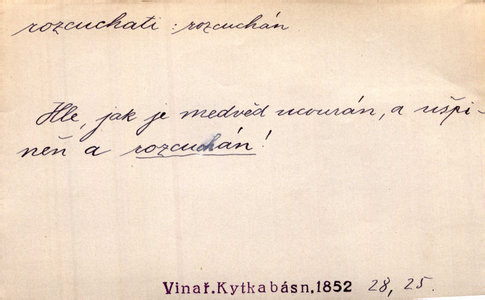 rozcuchati : rozcuchán
Hle, jak je medvěd ucourán, a ušpi-
něn a rozcuchán!
Vinař.Kytkabásn.1852 28, 25.